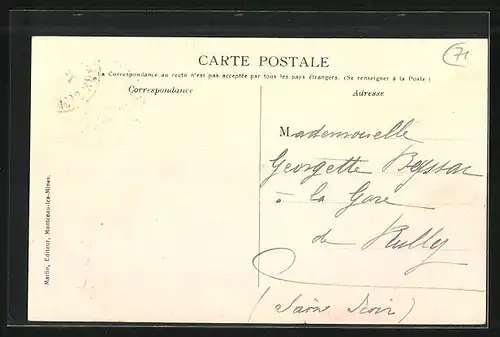 71
CARTE POSTALE
La Correspondance au recto n'est pas acceptée par tous les pays étrangers. (Se renseigner à la Poste)
Correspondance
Adresse
Mademoiselle
Georgette
à la Gare
de Rully
(Saône Loir)
Martin, Editeur, Montceau-les-Mines.